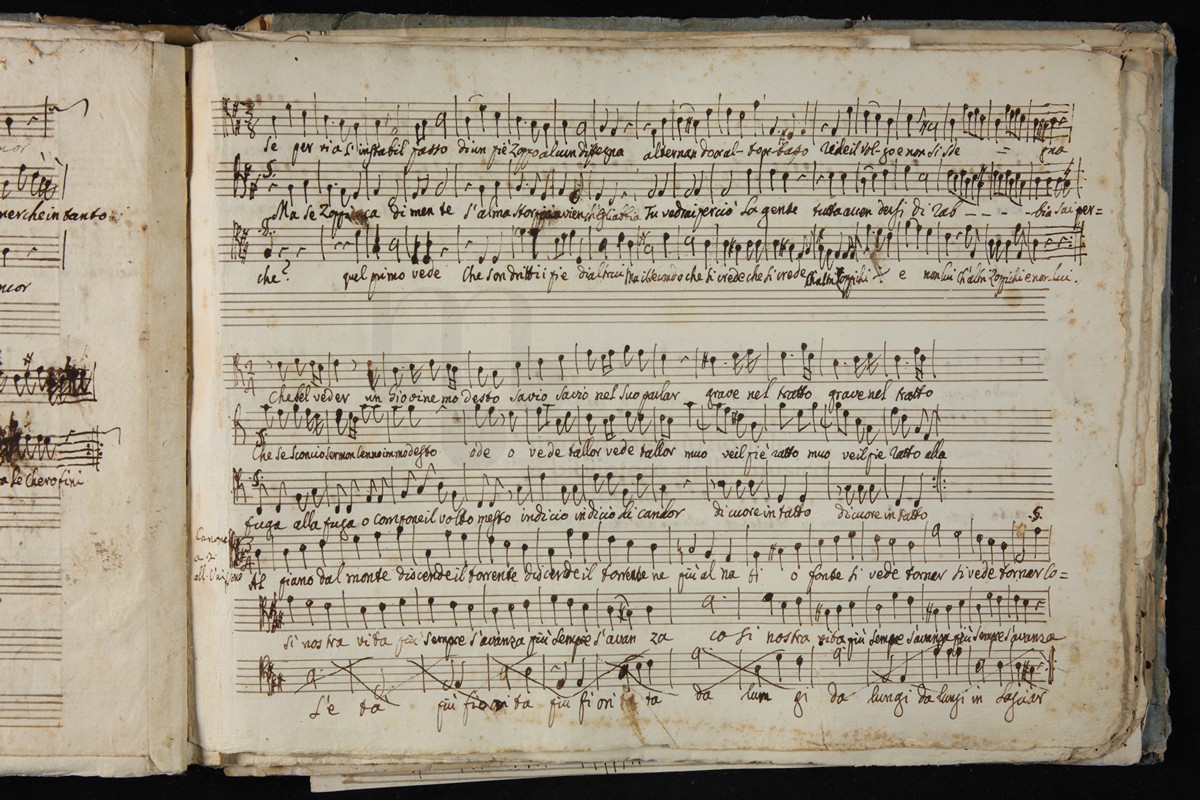 nerche in tanto
ncor
Se per via l'instabil passo di un piè Zoppo alcun disegna alternando or al- to or basso Vede il vol- go e non si sde - - gna
Ma se Zoppica di men te l'alma Tu vedrai perciò La gente tutta accen dersi di Rab - - - - bia Sai per=
che? quel primo vede Che son dritti i piè di altrui ma il secondo che si crede che si crede Ch'altri Zoppichi e non lui Ch'altri Zoppichi e non lui.
Che bel veder un giovine mo desto savio savio nel suo parlar grave nel tratto grave nel tratto
Che se sconcio sermon cenno immodesto ode o vede tallor vede tallor muo veil piè ratto muo veil piè ratto alla
fuga alla fuga o compone il volto mesto indicio indicio di candor di cuore intatto di cuore intatto
Canone
a 3
all'Unisono
Al piano dal monte discende il torrente discende il torrente ne più al na ti o fonte si vede tornar si vede tornar Co=
si nostra vita più sempre s'avanza più sempre s'avan za co si nostra vita più sempre s'avanza più sempre s'avanza
L'e ta più fiorita più fiori ta da lun gi da lungi da lungi in lasciar